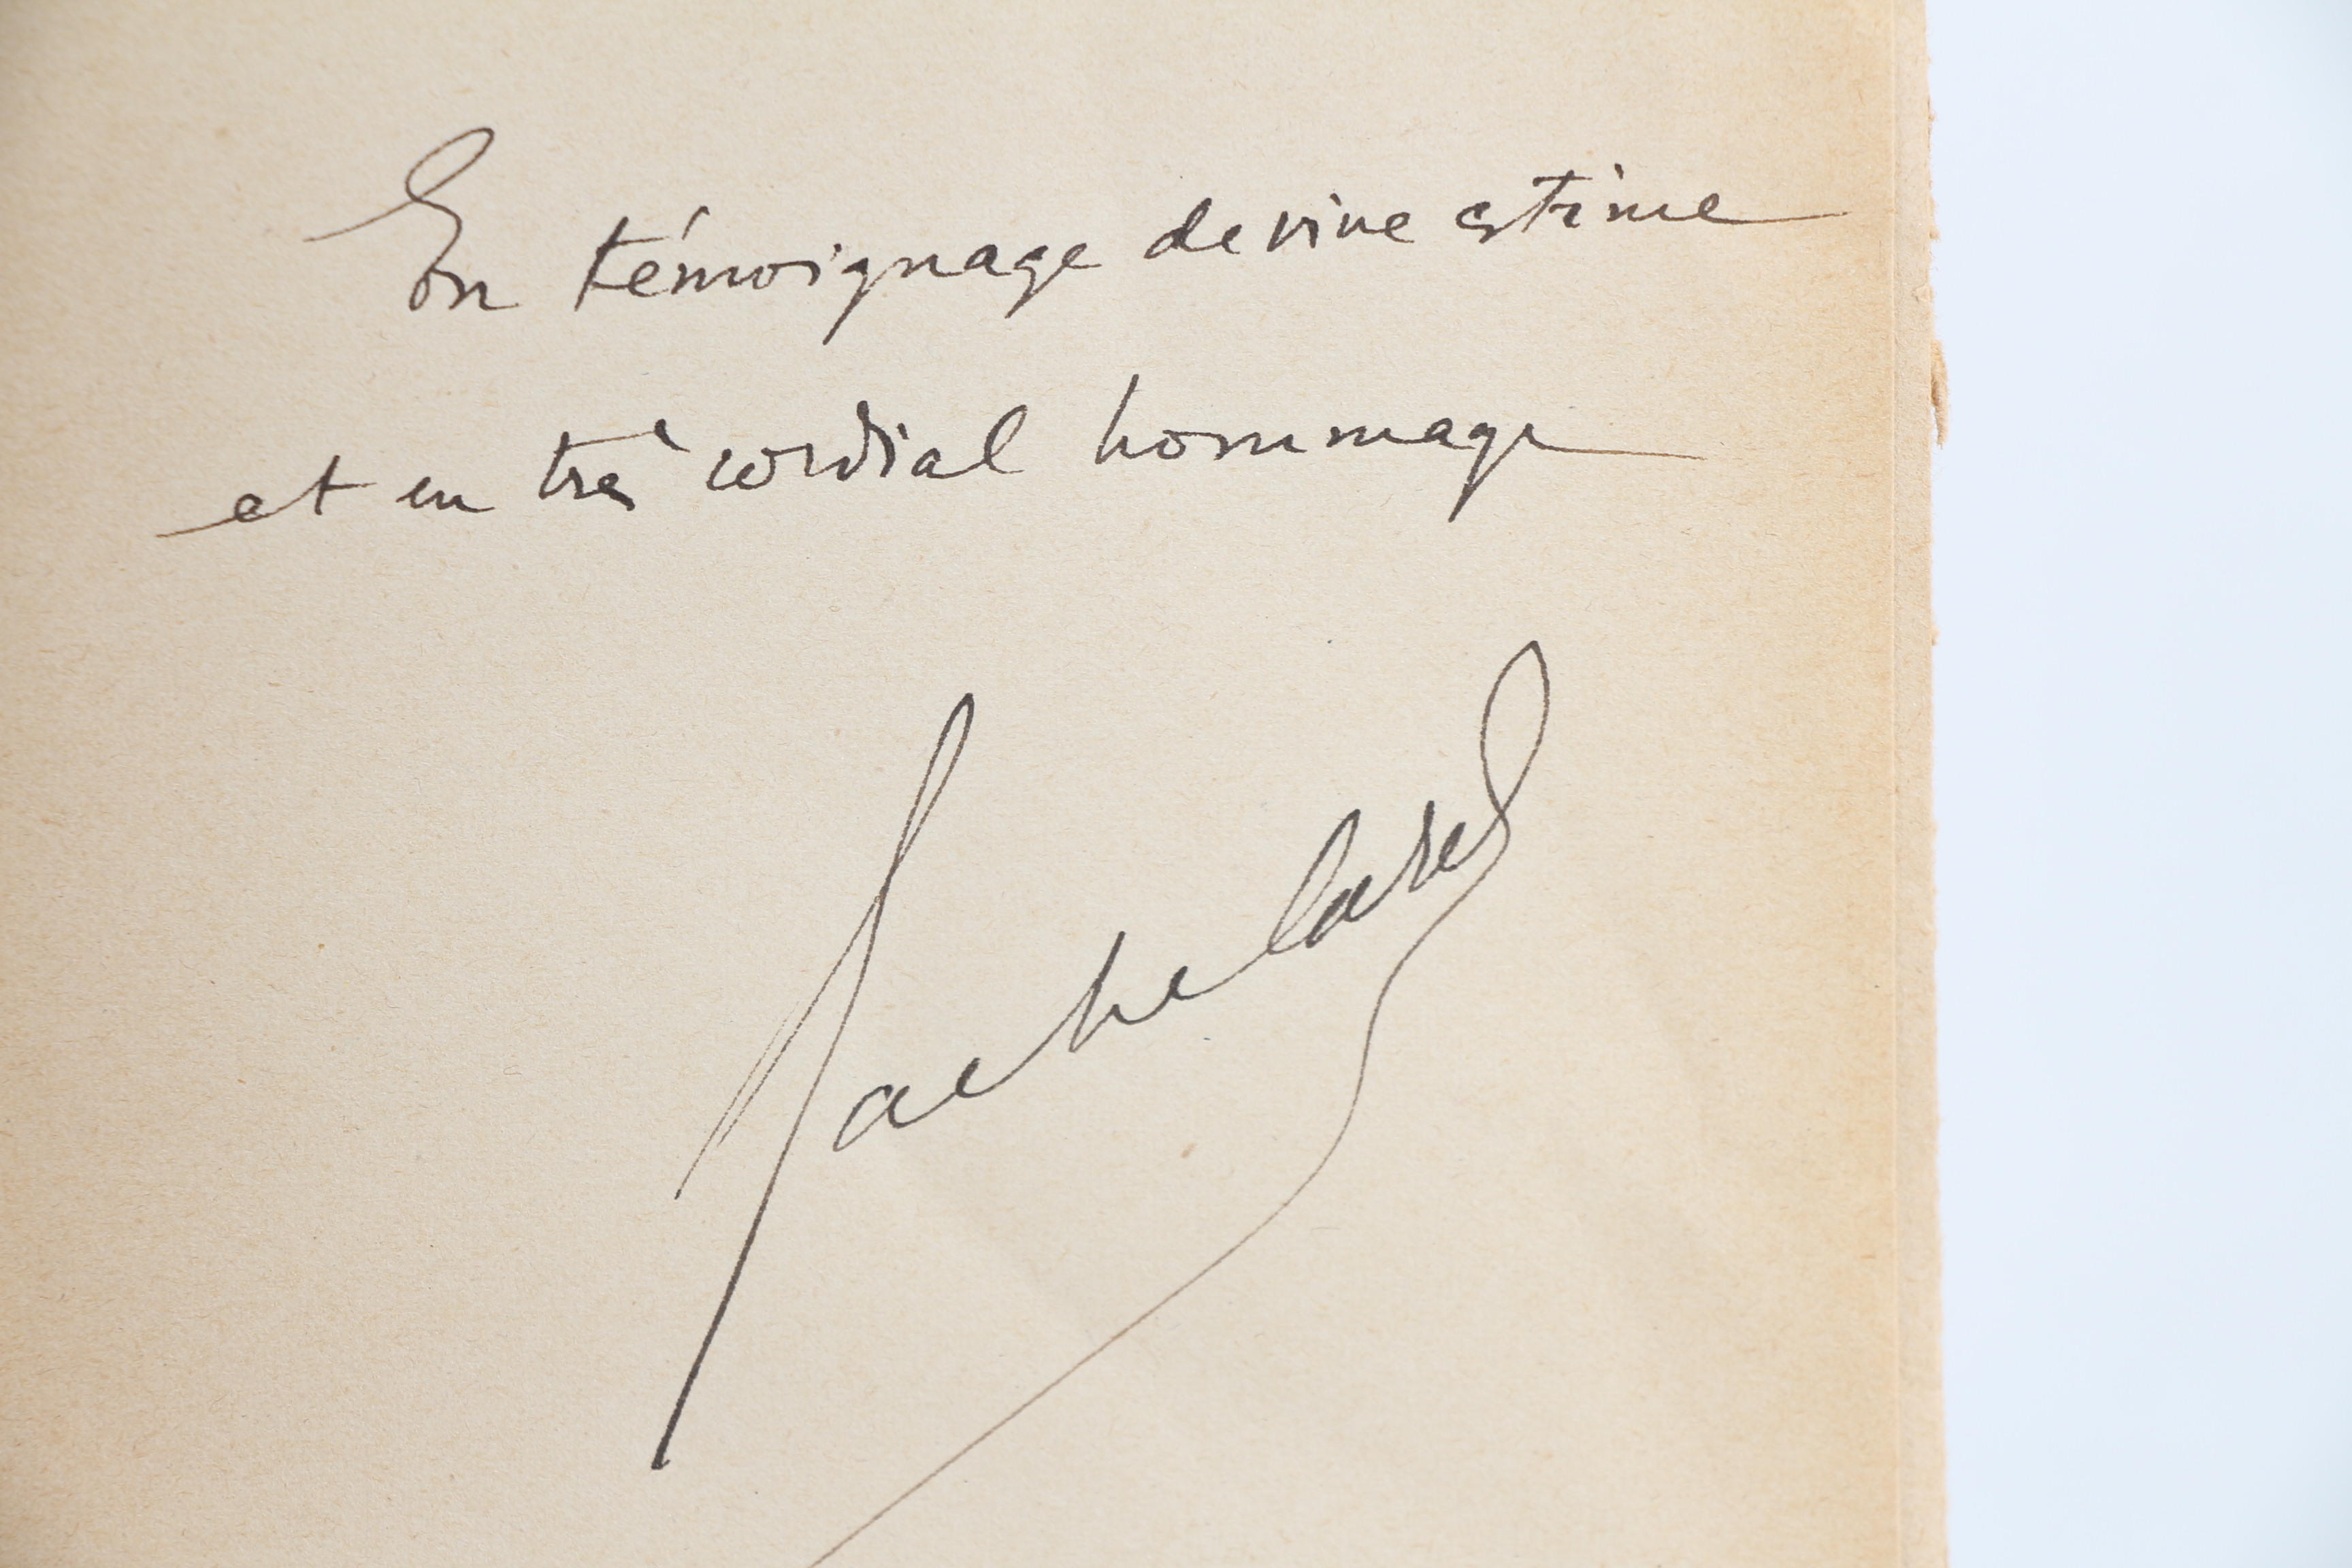 En témoignage de vive estime
et en très cordial hommage
Bachelard